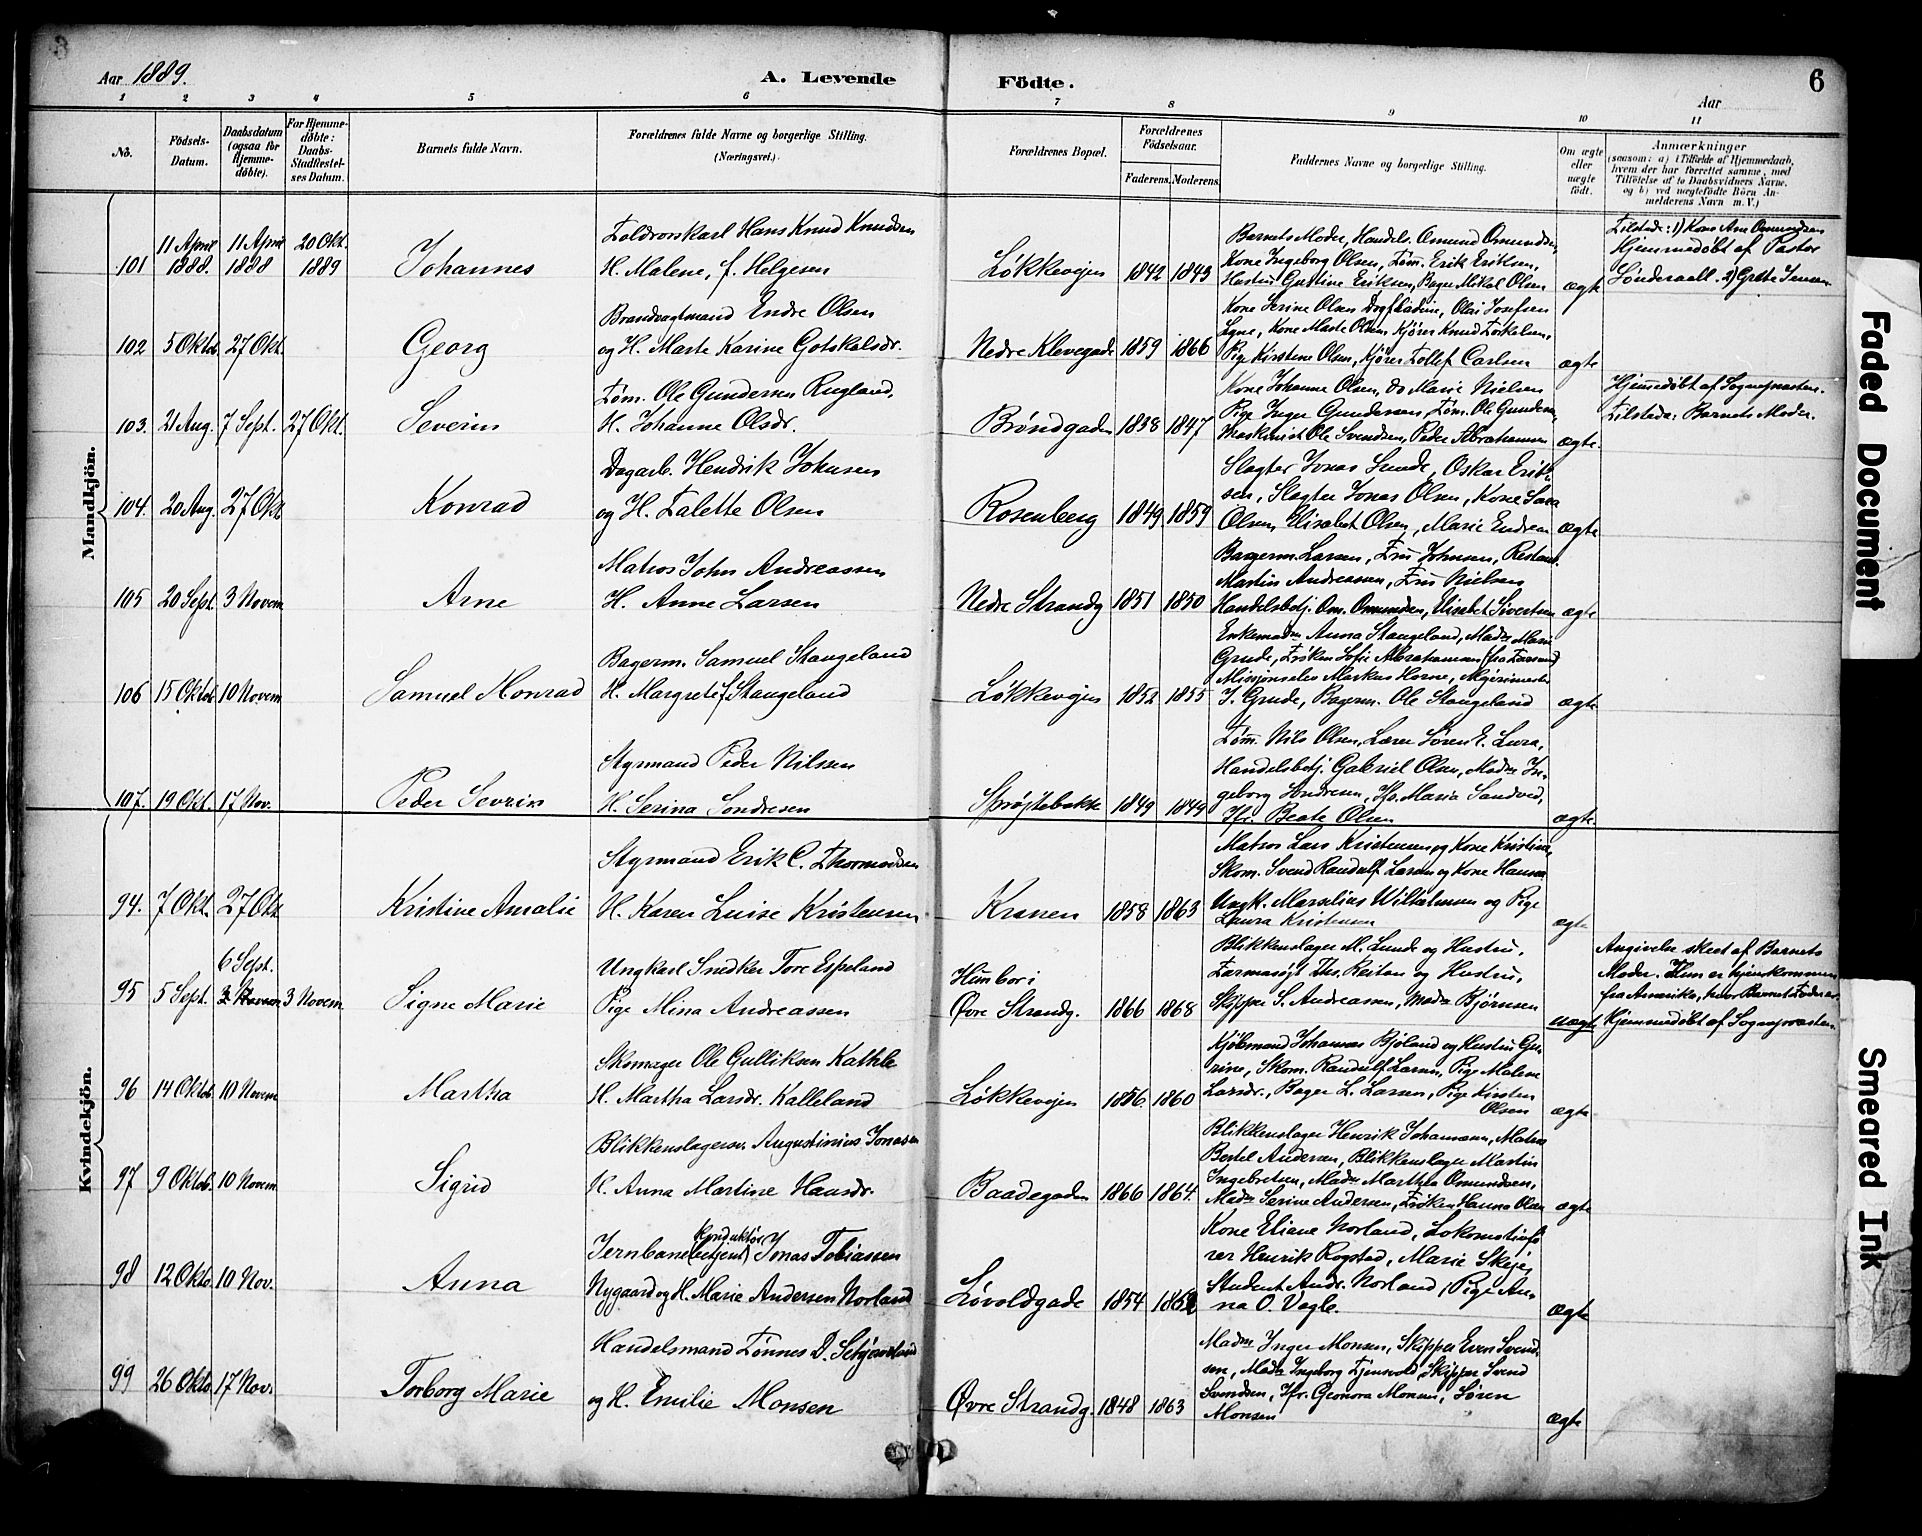 Aar 1889.
A. Levende Födte.
Aar
6
1 2 3 4 5 6 7 8 9 10 11
No.
Födsels-Datum.
Daabsdatum (ogsaa for Hjemme-døbte).
For Hjemme-døbte: Daabs-Stadfæstel-ses Datum.
Barnets fulde Navn.
Forældrenes fulde Navne og borgerlige Stilling.
(Næringsvei.)
Forældrenes Bopæl.
Forældrenes Födselsaar.
Faderens. Moderens.
Faddernes Navne og borgerlige Stilling.
Om ægte eller uægte födt.
Anmærkninger
(saasom: a) i Tilfælde af Hjemmedaab,
hvem der har forrettet samme, med
Tilföielse af to Daabsvidners Navne.
og b) ved uægtefödte Börn An-
melderens Navn m. V.)
Mandkjön.
101 11 April 1888. 11 April 1888 20 Okt. 1889 Johannes
Toldrorskarl Hans Knud Knudsen
H. Malene, f. Helgesen
Løkkevejen 1842 1843
Barnets Moder, Handels. Omund Omundsen,
Kone Ingeborg Olsen, Tøm. Erik Eriksen,
Hustru Gustine Eriksen, Bager Mikal Olsen
ægte
Tilstede: 1) Kone Ane Omundsen
Hjemmedøbt af Pastor
2) Grethe Jensen
102 5 Oktob. 27 Okt. Georg
Brandvagtmand Endre Olsen
og H. Marte Karine Gotskalsdr.
Nedre Klevegade 1859 1866
Kone Serine Olsen Olai Josefsen
Lyne, Kone Marte Olsen Kjører Knud Torkelsen,
Pige Kirstene Olsen, Kjører Tollef Carlsen
ægte
103. 21 Aug. 7 Sept. 27 Okt. Severin
Tøm. Ole Gundersen Rugland,
H. Johanne Olsdr.
Brøndgaden 1838 1847
Kone Johanne Olsen, do Marie Nielsen
Pige Inger Gundersen, Tøm. Ole Gundersen,
Maskinist Ole Svendsen, Peder Abrahamsen
ægte.
Hjemmedøbt af Sognepræsten.
Tilstede: Barnets Moder.
104. 20 Aug. 27 Okt Konrad
Dagarb. Hendrik Johnsen
og H. Talette Olsen
Rosenberg 1849 1859
Slagter Jonas Lunde, Oskar Erik-
sen, Slagter Jonas Olsen, Kone Sara
Olsen, Elisabet Olsen, Marie Endresen
ægte
105 20 Sept. 3 Novem Arne
Matros John Andreassen
H. Anne Larsen
Nedre Strandg 1851 1850
Bagerm. Larsen, Fru Johnsen, Restaur.
Martin Andreassen, Fru Nielsen
Handelsbetj. Om. Omundsen, Elisabet Sivertsen
ægte
106 15 Oktob 10 Novem Samuel Monrad
Bagerm. Samuel Stangeland
H. Margrete f. Stangeland
Løkkevejen 1852 1855
Enkemadm Anna Stangeland, Madm Marie
Grude, Frøken Sofie Abrahamsen (fra Farsund
Missionselev Markus Horne,
J. Grude, Bagerm. Ole Stangeland
ægte
107. 19 Okt. 17 Nov. Peder Sevrin
Styrmand Peder Nilssen
H. Serina Sondresen
Sprøjtebakke 1849 1849
Tøm. Nils Olsen, Lærer Søren E. Lura,
Handelsbetj. Gabriel Olsen, Madm In-
geborg Sondresen, Jfr. Maria Sandved,
Jfr. Beate Olsen
ægte.
Kvindekjön.
94. 7 Okt. 27 Okt Kristine Amalie
Styrmand Erik C. Thormodsen
H. Karen Luise Kristensen
Kranen 1858 1863
Matros Lars Kristensen og Kone Kristine,
Skom. Svend Randulf Larsen og Kone Hanna
Ungk. Marselius Wilhelmsen og Pige
Laura Kristensen
ægte
95 5 Sept. 6 Sept. 3 Novem 3 Novem. Signe Marie
Ungkarl Snedker Tore Espeland
Pige Mina Andreassen
Hun bor i
Øvre Strandg. 1866 1868
Blikkenslager M. Lunde og Hustru,
Ths. Reiton og Hustru,
Skipper S. Andreassen, Madm Bjørnsen
uægte
Angivelse skeet af Barnets
Moder. Hun er hjemkommen
fra Amerika, hvor Barnets Fader er.
Hjemmedøbt af Sognepræsten
96 14 Oktob 10 Novem Martha
Skomager Ole Gulliksen Kathle
H. Martha Larsdr. Kalleland
Løkkevejen 1856. 1860
Kjøbmand Johannes Bjoland og Hustru Gu-
rine, Skom. Randulf Larsen, Pige Malene
Larsdr., Bager L. Larsen, Pige Kirsten
Olsen
ægte
97 9 Oktob. 10 Novem Sigrid
Blikkenslagersv. Augustinius Jonasen
H. Anna Martine Hansdr.
Baadegaden 1866 1864.
Blikkenslager Henrik Johannesen, Matros
Bertel Andersen, Blikkenslager Martin
Ingebretsen, Madm Martha Omundsen,
Madm Serine Andersen, Frøken Hanna Olsen
ægte
98 12 Okto 10 Nov. Anna
Jernbane (betjent) Konduktør Jonas Tobiassen
Nygaard og H. Marie Andersen Norland
Løvoldgade 1854 1862
Kone Eliane Norland, Lokomotivfø-
rer Henrik Rogstad, Marie Skeje,
Student Andr. Norland, Pige An-
na O. Vagle.
ægte
99 26 Okto. 17 Nov. Torborg Marie
Handelsmand Tønnes D.
og H. Emilie Monsen
Øvre Strandg. 1848 1863
Madm Inger Monsen, Skipper Even Svend-
sen, Madm Ingeborg Tjensvold, Skipper Svend
Svendsen, Jfr. Geonora Monsen, Søren
Monsen
ægte
Faded Document
Smeared Ink